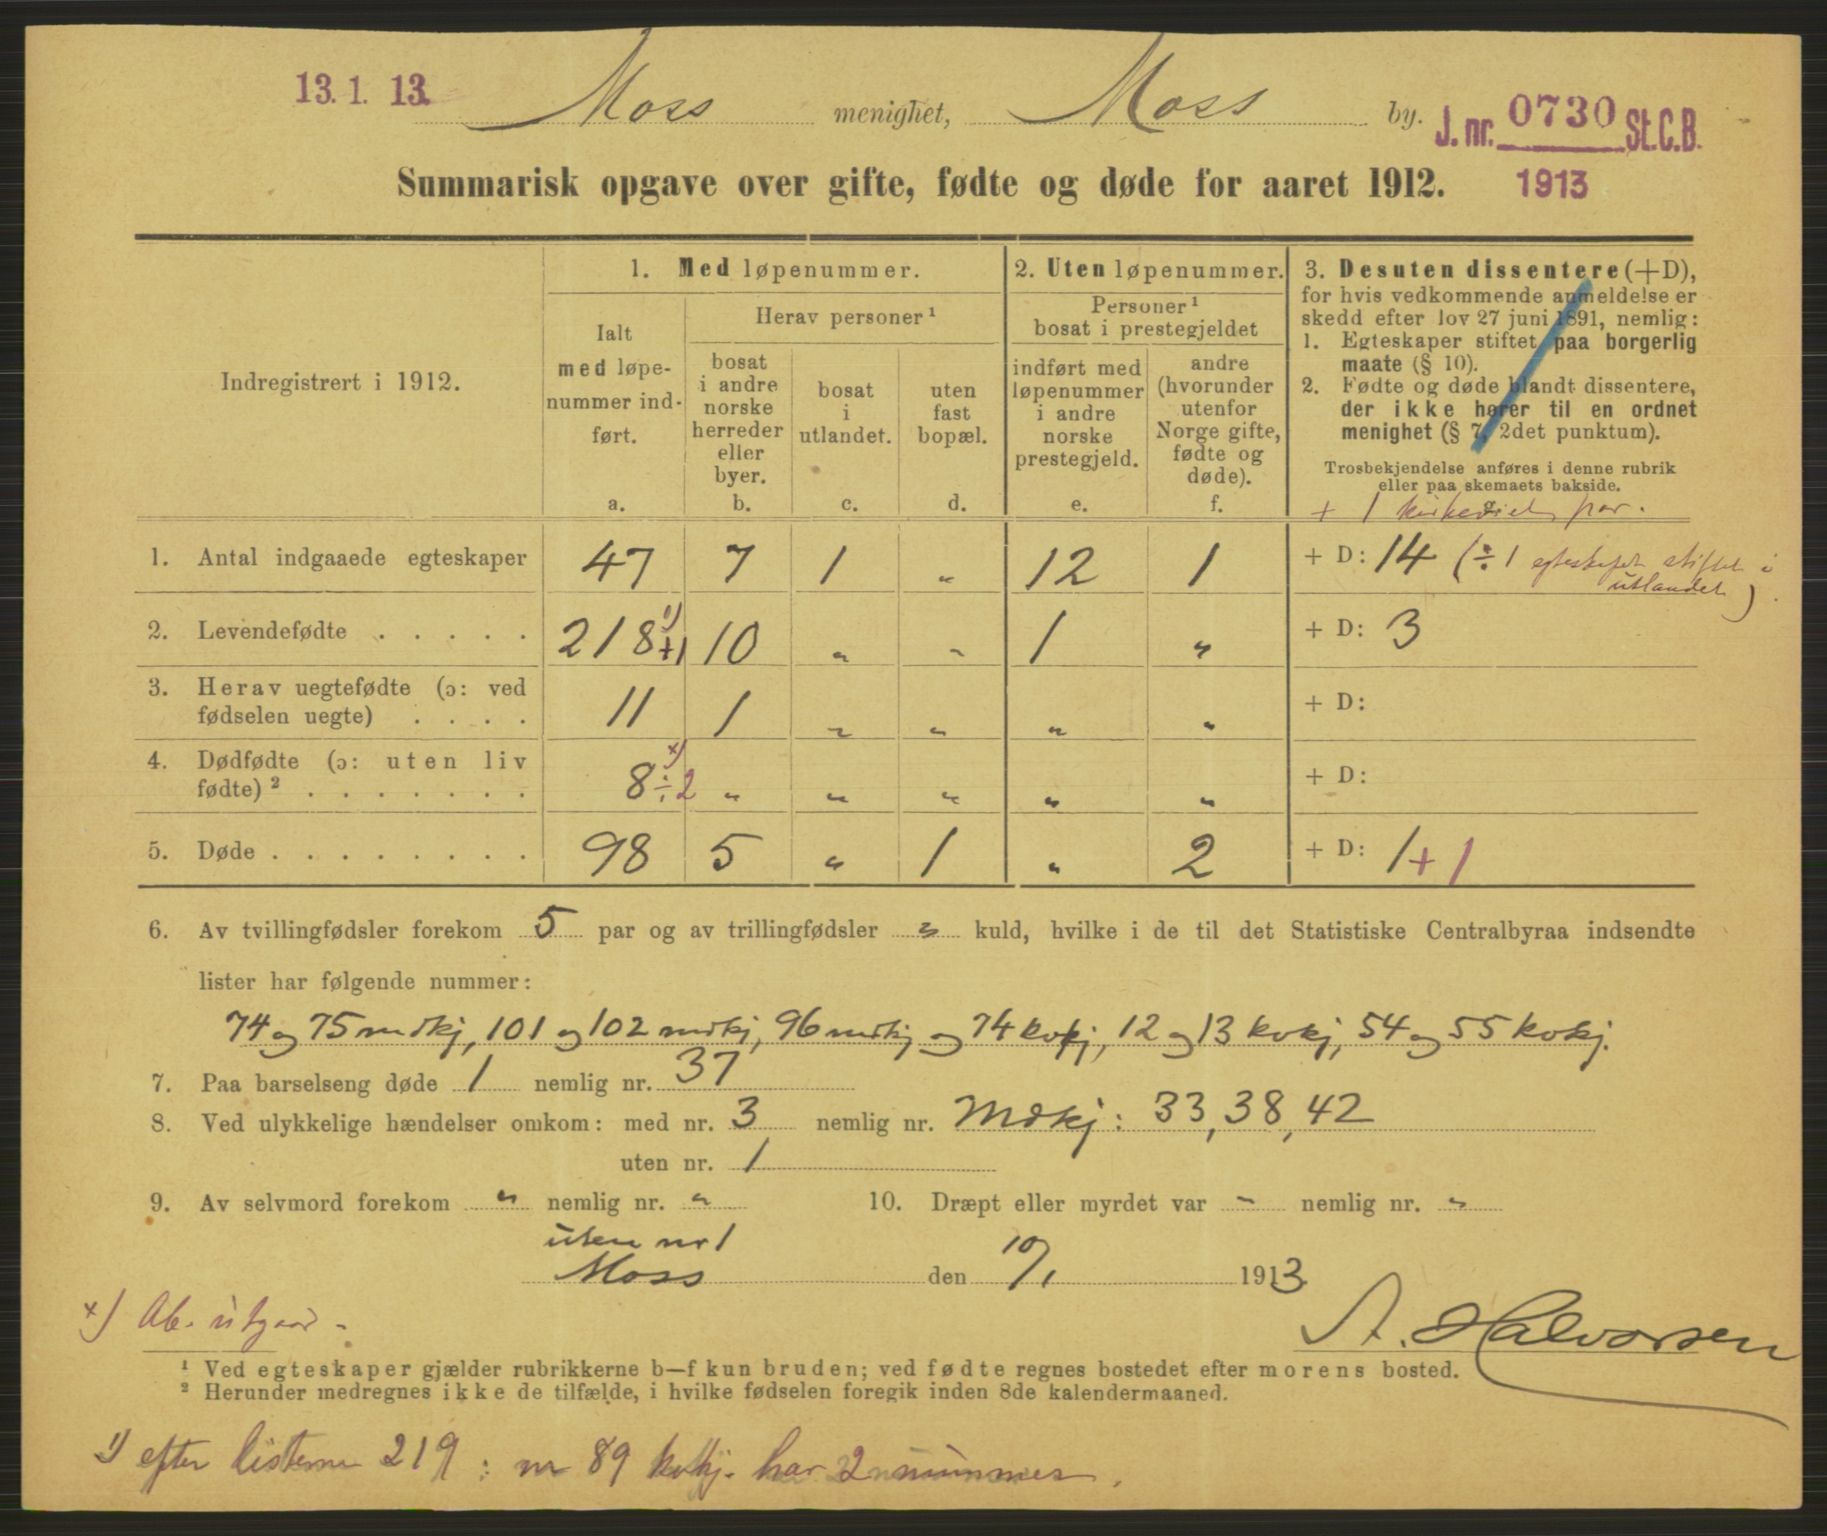 13. 1. 13.
Moss menighet, Moss by.
J. nr. 0730 St.C.B.
1913
Summarisk opgave over gifte, fødte og døde for aaret 1912.
Indregistrert i 1912.
1. Med løpenummer.
Ialt med løpenummer indført.
a.
Herav personer ¹
bosat i andre norske herreder eller byer.
b.
bosat i utlandet.
c.
uten fast bopæl.
d.
2. Uten løpenummer.
Personer ¹ bosat i prestegjeldet
indført med løpenummer i andre norske prestegjeld.
e.
andre (hvorunder utenfor Norge gifte, fødte og døde).
f.
3. Desuten dissentere (+D),
for hvis vedkommende anmeldelse er
skedd efter lov 27 juni 1891, nemlig:
1. Egteskaper stiftet paa borgerlig
maate (§ 10).
2. Fødte og døde blandt dissentere,
der ikke hører til en ordnet
menighet (§ 7, 2det punktum).
Trosbekjendelse anføres i denne rubrik
eller paa skemaets bakside.
g.
+ 1 kirkeviet par.
1. Antal indgaaede egteskaper 47 7 1 „ 12 1 + D: 14 (÷ 1 egteskapet stiftet i
utlandet)
2. Levendefødte . . . . . 218 ¹) +1 10 „ „ 1 „ + D: 3
3. Herav uegtefødte (ɔ: ved
fødselen uegte) . . . . 11 1 „ „ „ „ + D:
4. Dødfødte (ɔ: uten liv
fødte) ² . . . . . . . 8 ˣ) ÷2 „ „ „ „ „ + D:
5. Døde . . . . . . . . . 98 5 „ 1 „ 2 + D: 1 + 1
6. Av tvillingfødsler forekom 5 par og av trillingfødsler „ kuld, hvilke i de til det Statistiske Centralbyraa indsendte
lister har følgende nummer:
74 og 75 mdkj, 101 og 102 mdkj, 96 mdkj og 74 kvkj, 12 og 13 kvkj, 54 og 55 kvkj.
7. Paa barselseng døde 1 nemlig nr. 37
8. Ved ulykkelige hændelser omkom: med nr. 3 nemlig nr. Mdkj: 33, 38, 42
uten nr. 1
9. Av selvmord forekom „ nemlig nr. „ 10. Dræpt eller myrdet var „ nemlig nr. „
uten nr 1
Moss den 10/1 1913.
A. Halvorsen
x) Ab. utgaar.
¹ Ved egteskaper gjælder rubrikkerne b—f kun bruden; ved fødte regnes bostedet efter morens bosted.
² Herunder medregnes ikke de tilfælde, i hvilke fødselen foregik inden 8de kalendermaaned.
¹) efter listerne 219 : nr 89 kvkj. har 2 nummer.